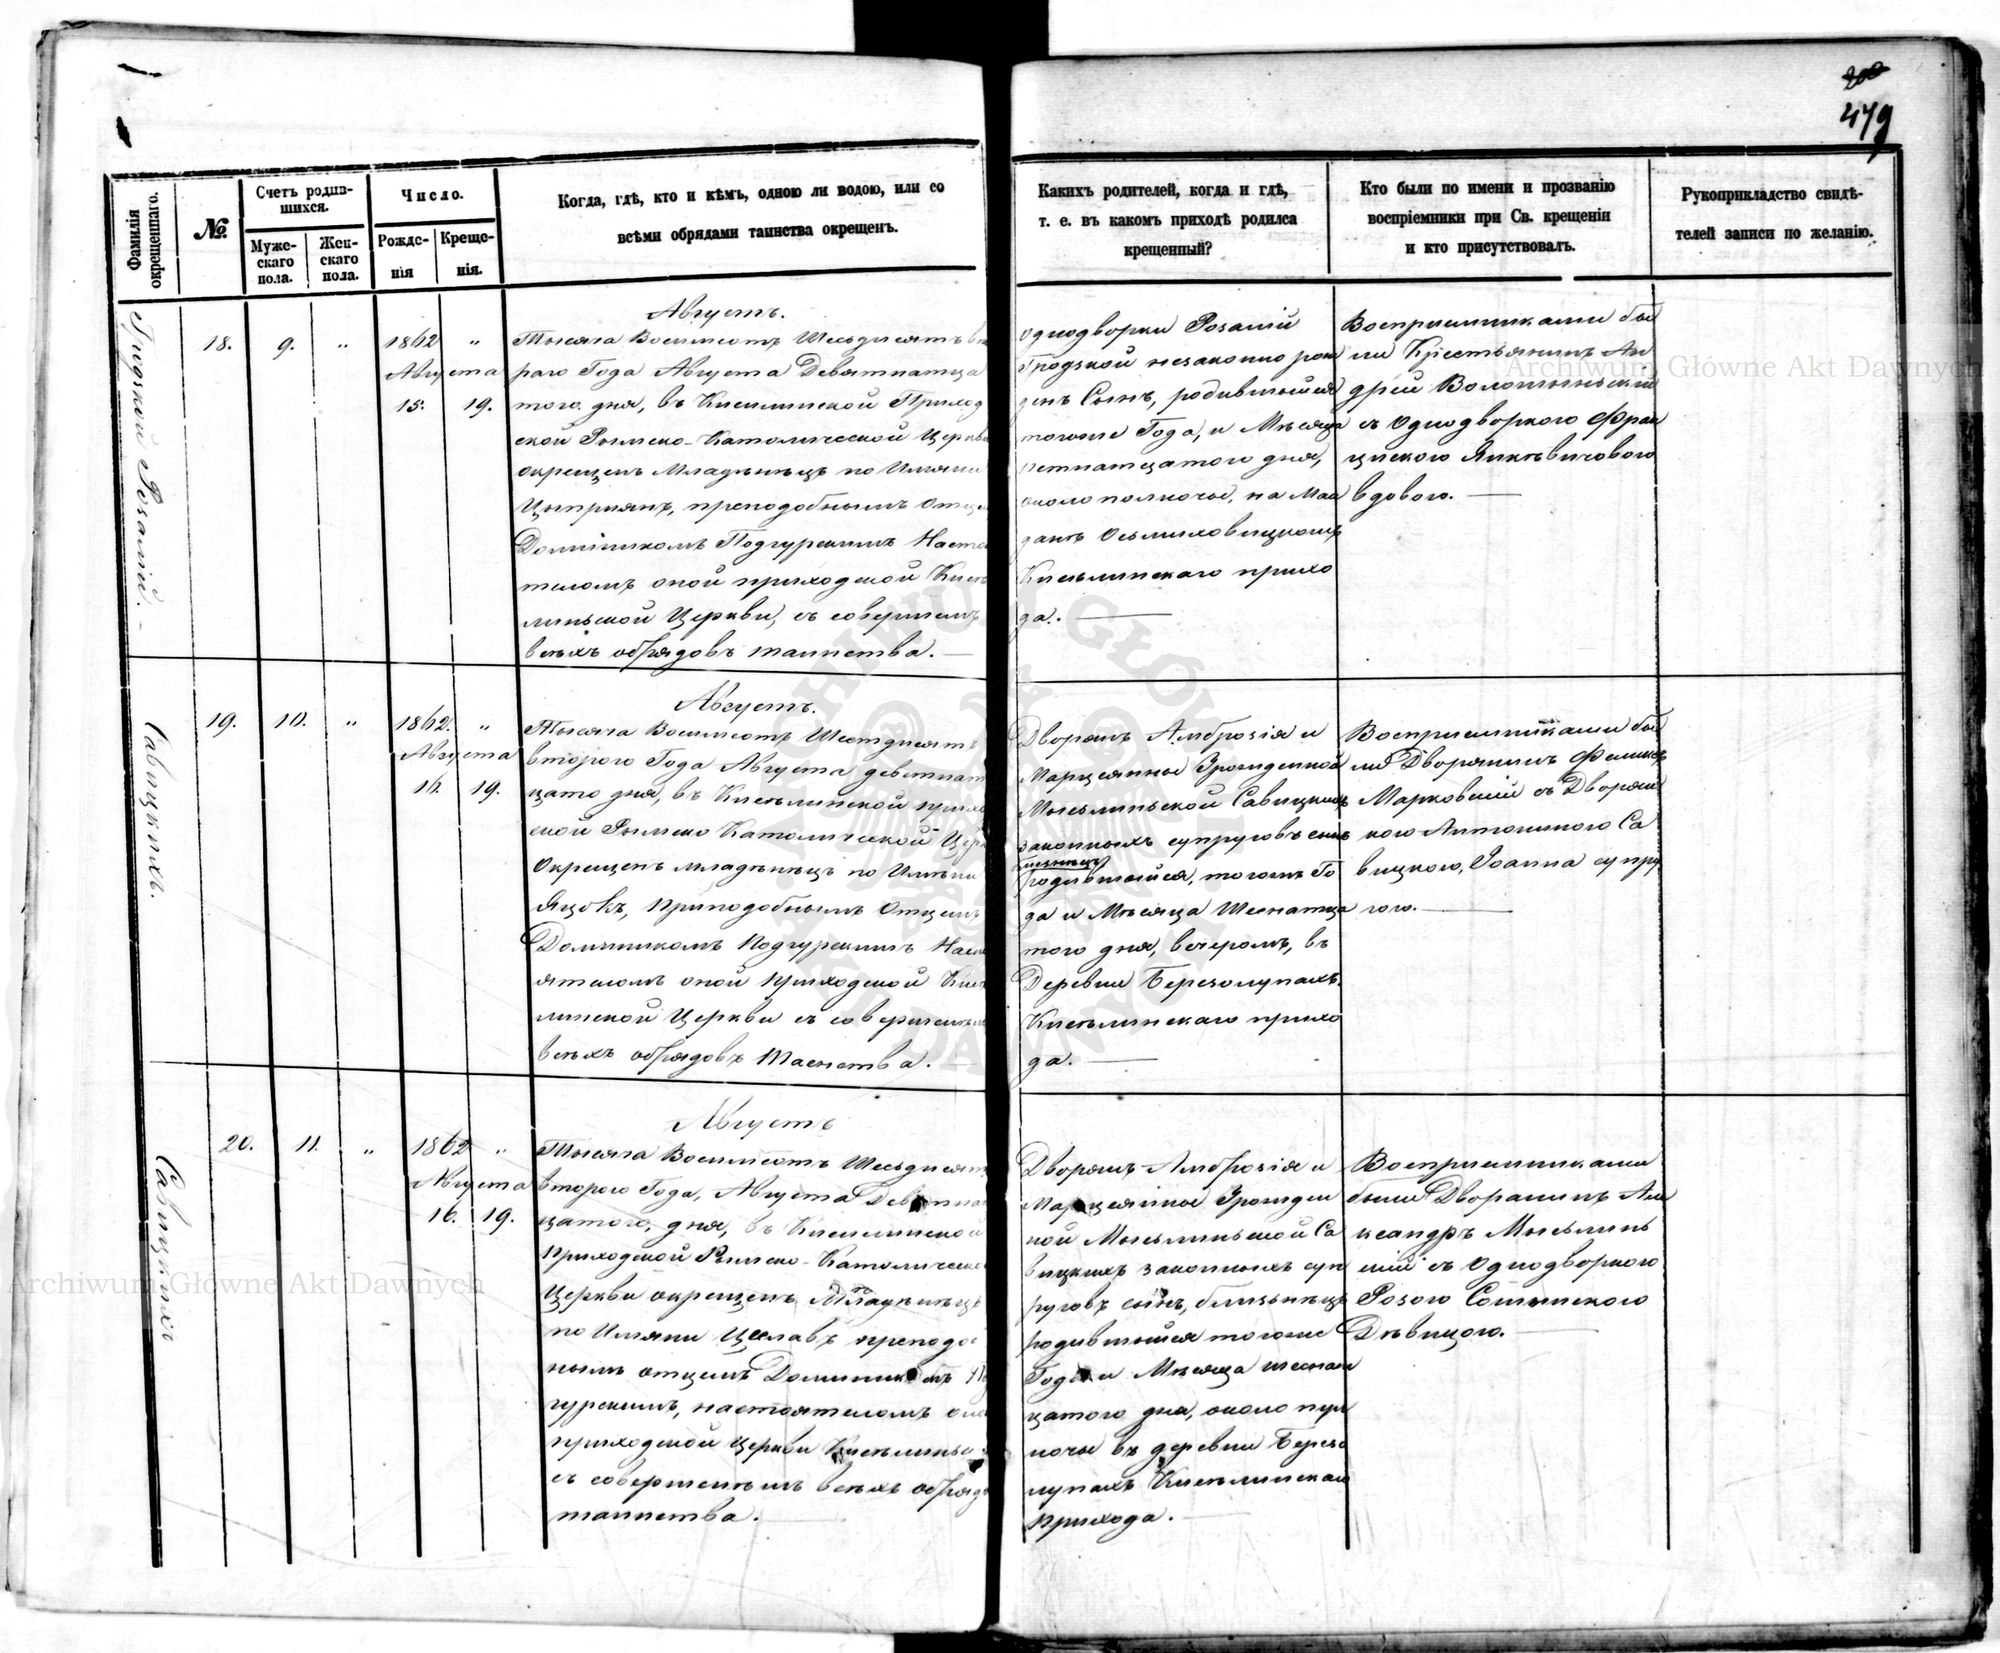 479
Фамилія окрещеннаго.
№
Счетъ родив-
шихся.
Муже-
скаго
пола.
Жен-
скаго
пола.
Число.
Рожде-
нія
Креще-
нія.
Когда, гдѣ, кто и кѣмъ, одною ли водою, или со
всѣми обрядами таинства окрещенъ.
Каких родителей, когда и гдѣ,
т. е. въ какомъ приходѣ родился
крещенный?
Кто были по имени и прозванію
воспріемники при Св. крещеніи
и кто присутствовалъ.
Рукоприкладство свидѣ-
телей записи по желанію.
18. 9. „ 1862 „
Августа
15. 19.
Августъ.
Тысяча Восимсотъ Шесьдисятъ
раго Года Августа Девятнатца
того дня, въ Кисилинской Приход
ской Рымско-Католической Церкви
окрещенъ Младѣнѣцъ по Имяни
Цыприянъ, преподобнымъ Отцем
Домиником Подгурскимъ Насто
телом оной приходской Кисѣ
линьской Церкви, съ совершенѣ
всѣхъ обрядовъ таинства.
однодворки Розаліи
Гродзкой незаконно рож
денъ Сынъ, родившыйся
тогоже Года, и Мѣсяца
петнатцатого дня,
около полночы, на Май
данѣ Осьмиховицкомъ
Кисѣлинскаго прихо
да.
Восприемниками бы
ли Крестьянинъ Ан
дрей Волотыньский
съ Однодворкого Фран
циского Янкѣвичового
вдового.
Савицкихъ.
19. 10. „ 1862. „
Августа
16. 19.
Августъ.
Тысяча Восимсотъ Шестдисятъ
второго Года Августа девятнат
цато дня, въ Кисѣлинской прихо
ской Рымско Католической Церк
Окрещенъ младѣнѣцъ по Имѣни
Яцѣкъ, Приподобнымъ Отцем
Домиником Подгурскимъ Наст
ятелом оной Приходской Кисѣ
линской Церкви съ совершенѣм
всѣхъ обрядовъ Таенства.
Дворянъ Амброзія и
Марцеянны Зрожденной
Мысьлиньской Савицкихъ
законныхъ супруговъ сынъ
близнѣцъ
родившыйся, тогожъ Го
да и Мѣсяца Шеснатца
того дня, вечеромъ, въ
Деревни Березолупахъ
Кисѣлинскаго прихо
да.
Восприемниками бы
ли Дворянинъ Феликсъ
Марковский съ Дворян
кого Антониного Са
вицкого, Іоанна супру
гого.
Савицкихъ
20. 11. „ 1862 „
Августа
16. 19.
Августъ
Тысяча Восимсотъ Шесьдисят
второго Года, Августа Девятна
цатого, дня, въ Кисилинской
Приходской Рымско-Католическо
Церкви окрещенъ Младѣнѣцъ
по Имяни Цеславъ преподо
нымъ отцемъ Доминикомъ По
гурскимъ, настоятелом оно
приходской Церкви Кисѣлиньс
съ совершенѣимъ всѣхъ обряд
таинства.
Дворянъ Амброзія и
Марцеянны Зрожден
ной Мысьлиньской Са
вицкихъ законныхъ суп
руговъ сынъ, близьнѣцъ
родившыйся тогоже
Года и Мѣсяца шеснат
цатого дня, около пул
ночы въ деревни Березо
лупахъ Кисѣлинскаго
прихода.
Восприемниками
были Дворянинъ Але
ксандръ Мысьлинь
ский съ Однодворкого
Розого Сошинского
Дѣвицого.
Archiwum Główne Akt Dawnych
Archiwum Główne Akt Dawnych